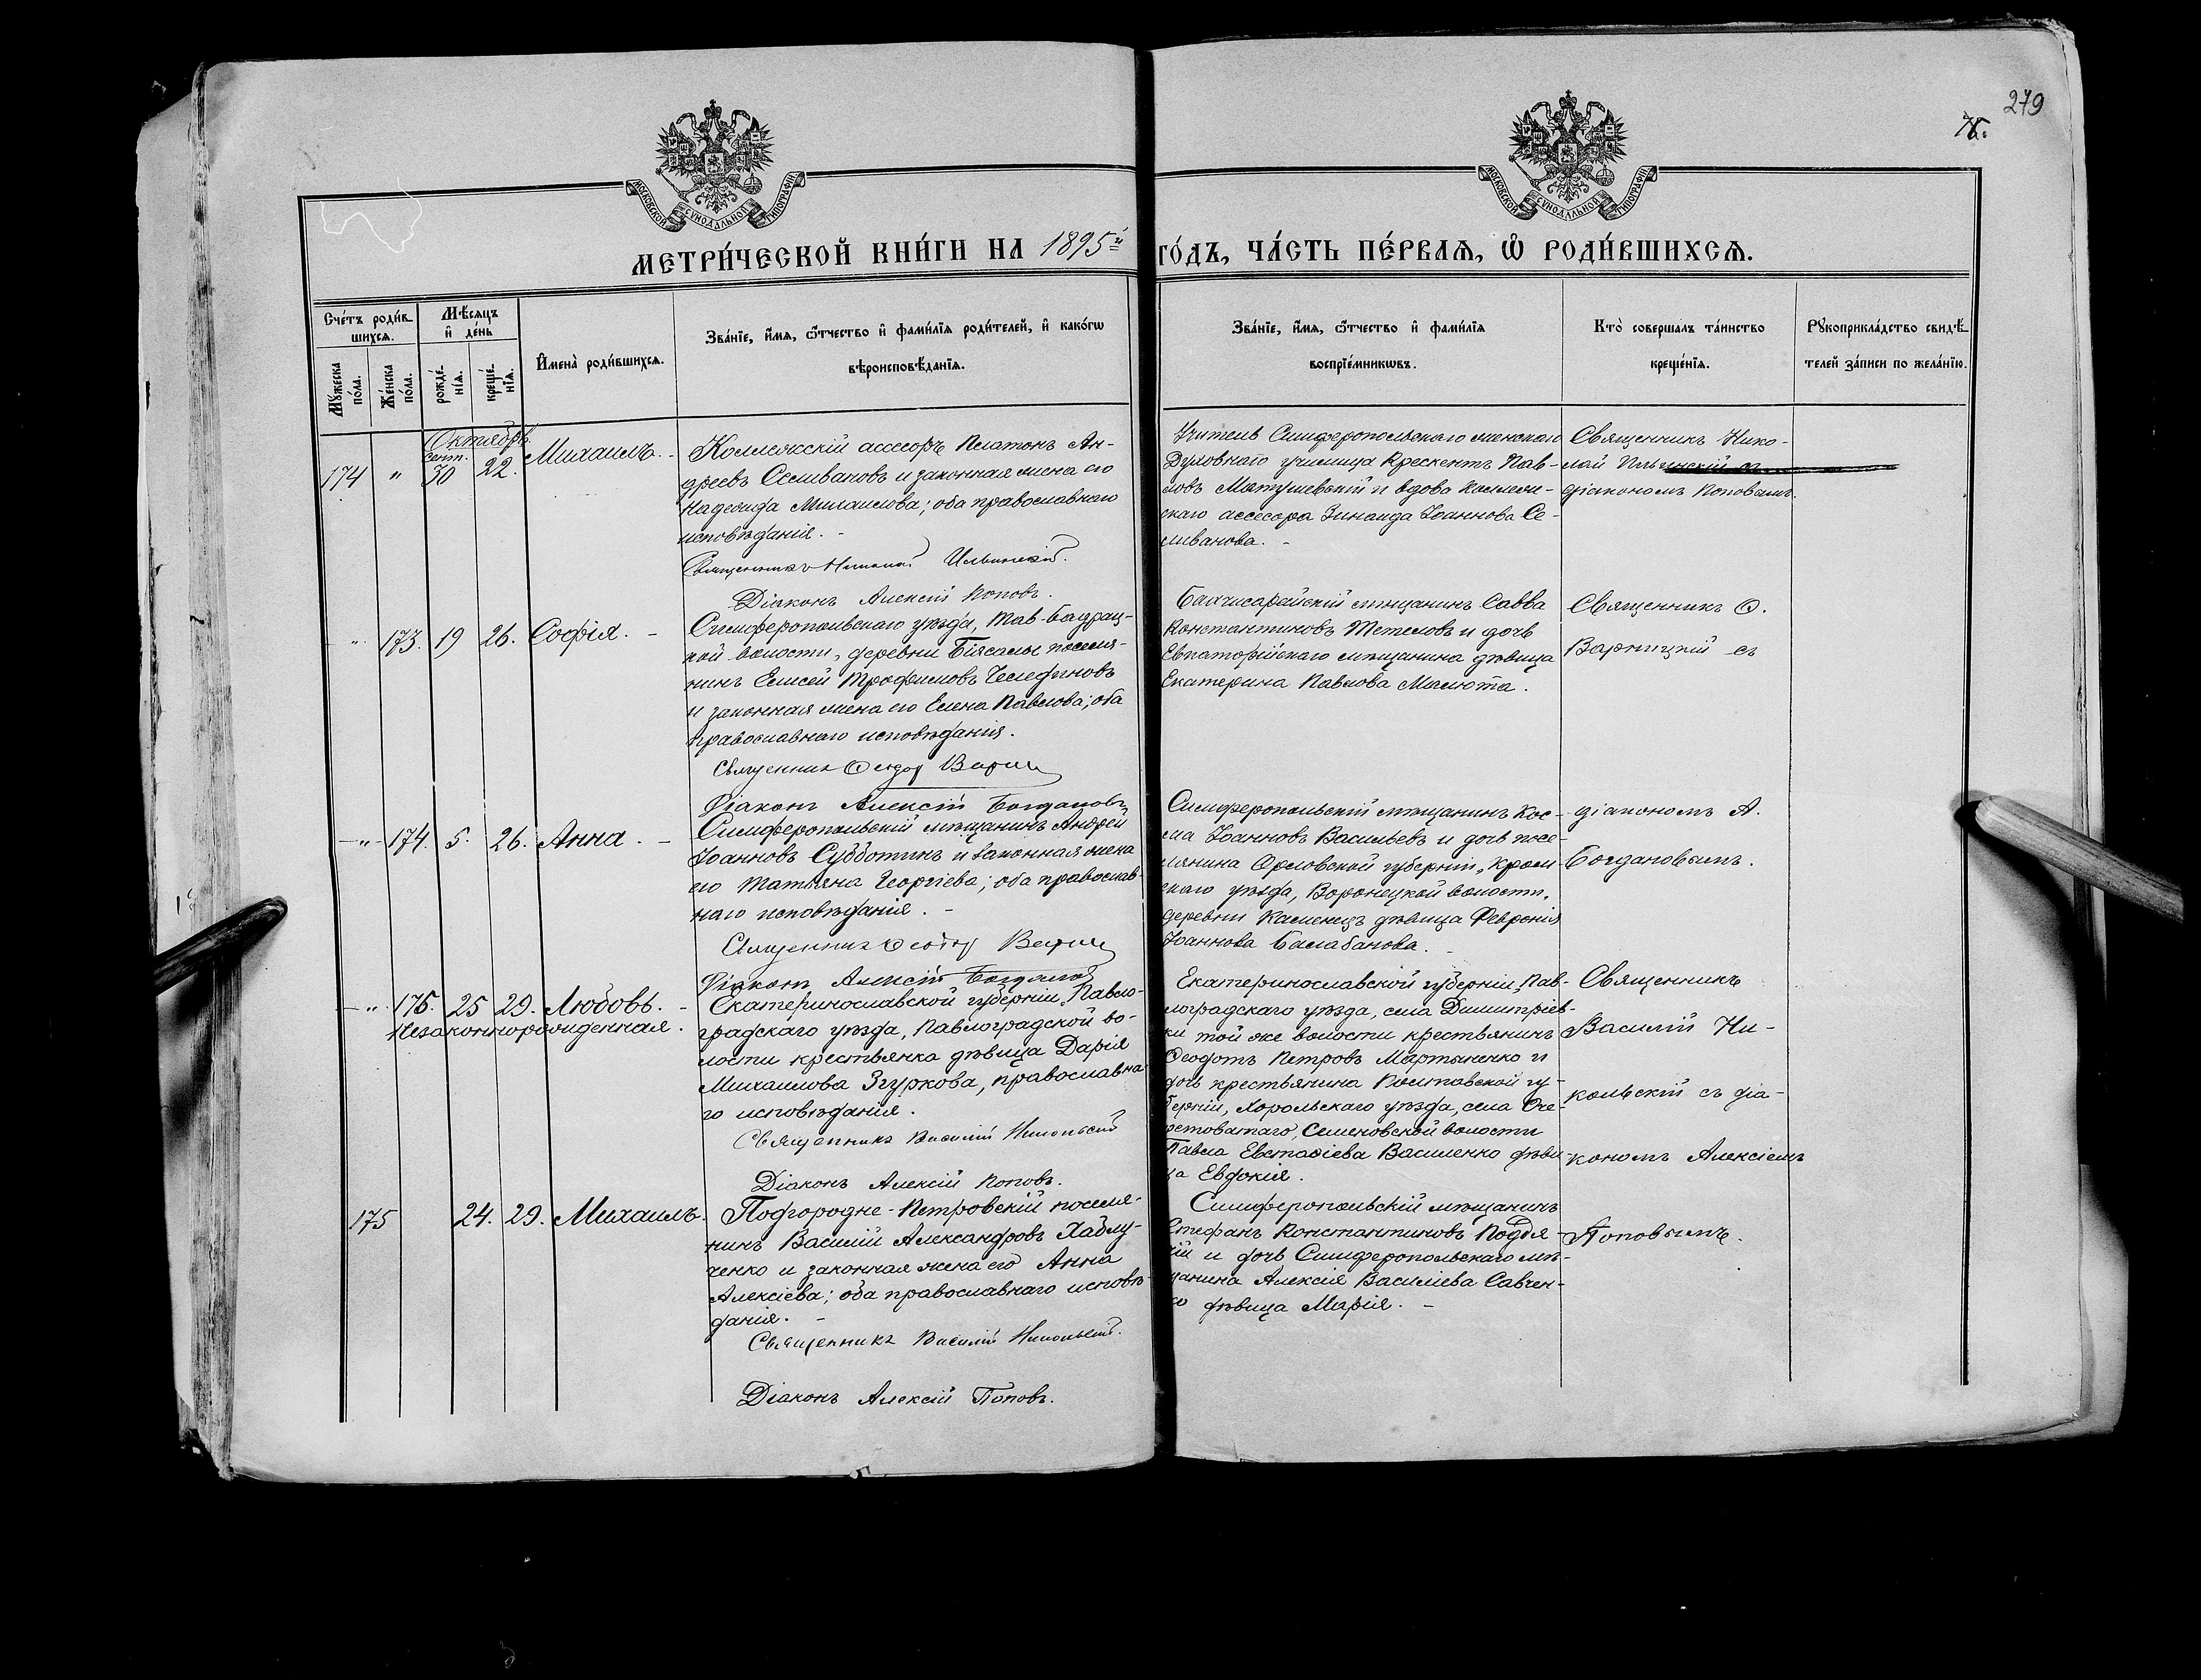 279
МОСКОВСКОЙ СУНОДАЛЬНОЙ ТИПОГРАФІИ
МОСКОВСКОЙ СУНОДАЛЬНОЙ ТИПОГРАФІИ
МЕТРИ́ЧЕСКОЙ КНИ́ГИ НА 1895й
ГО́ДЪ, ЧА́СТЬ ПЕ́РВАѦ, Ѡ РОДИ́ВШИХСѦ.
Сче́тъ роди́в
шихсѧ.
Мꙋ́жеска по́ла.
Же́нска по́ла.
Мѣ́сѧцъ
и҆ де́нь
рожде́нїѧ.
креще́нїѧ.
И҆мена̀ роди́вшихсѧ.
Зва́нїе, и҆́мѧ, ѻ҆́тчество и҆ фами́лїѧ роди́телей, и҆ како́гѡ
вѣроисповѣ́данїѧ.
Зва́нїе, и҆́мѧ, ѻ҆́тчество и҆ фами́лїѧ
воспрїе́мникѡвъ.
Кто̀ соверша́лъ та́инство
креще́нїѧ.
Рꙋкоприкла́дство свидѣ́-
телей за́писи по жела́нїю.
Октябрь.
174 " Сент. 30 22. Михаилъ. -
Коллежскій ассесоръ Платонъ Ан-
дреевъ Селивановъ и законная жена его
Надежда Михаилова; оба православнаго
исповѣданія. -
Священникъ Николай Ильинскій.
Діаконъ Алексій Поповъ.
Учитель Симферопольскаго женскаго
Духовнаго училища Крескентъ Пав-
ловъ Матушевскій и вдова Коллеж-
скаго ассесора Зинаида Іоаннова Се-
ливанова. -
Священникъ Нико-
лай Ильинскій съ
діакономъ Поповымъ.
" 173. 19 26. Софія. -
Симферопольскаго уѣзда, Тав-Бадрац-
кой волости, деревни Біясалы поселя-
нинъ Елисей Трофимовъ
и законная жена его Елена Павлова; оба
православнаго исповѣданія.
Священник Ѳеодор
Діаконъ Алексій Богдановъ
Бахчисарайскій мѣщанинъ Савва
Константиновъ и дочь
Евпаторійскаго мѣщанина дѣвица
Екатерина Павлова Малюта.
Священникъ Ѳ.
Варницкій съ
- " - 174. 5. 26. Анна. -
Симферопольскій мѣщанинъ Андрей
Іоанновъ Субботинъ и законная жена
его Татьяна Георгіева; оба православ-
наго исповѣданія. -
Священник Ѳеодор
Діаконъ Алексій Богдановъ
Симферопольскій мѣщанинъ Кос-
ма Іоанновъ Васильевъ и дочь посе-
лянина Орловской губерніи, Кром-
скаго уѣзда, Воронецкой волости,
деревни Каменецъ дѣвица Февронія
Іоаннова Балабанова.
діакономъ А.
Богдановымъ.
- " - 175. 25 29. Любовь. -
Незаконнорожденная.
Екатеринославской губерніи, Павло-
градскаго уѣзда, Павлоградской во-
лости крестьянка дѣвица Дарія
Михаилова Згуркова, православна-
го исповѣданія.
Священникъ Василій Никольскій
Діаконъ Алексій Поповъ.
Екатеринославской губерніи, Пав-
лоградскаго уѣзда, села Димитріев-
ки той же волости крестьянинъ
Ѳеодотъ Петровъ Мартыненко и
дочь крестьянина Полтавской гу-
берніи, Хорольскаго уѣзда, села Оче-
ретоватаго, Семеновской волости
Павла Евстаѳіева Василенко дѣви-
ца Евдокія.
Священникъ
Василій Ни-
кольскій съ діа-
кономъ Алексіемъ
175 24. 29. Михаилъ.
Подгородне-Петровскій поселя-
нинъ Василій Александровъ Хаблу-
ченко и законная жена его Анна
Алексіева; оба православнаго исповѣ-
данія. -
Священникъ Василій Никольскій.
Діаконъ Алексій Поповъ.
Симферопольскій мѣщанинъ
Стефанъ Константиновъ
и дочь Симферопольскаго мѣ-
щанина Алексія Василіева Савчен-
ко дѣвица Марія. -
Поповымъ.